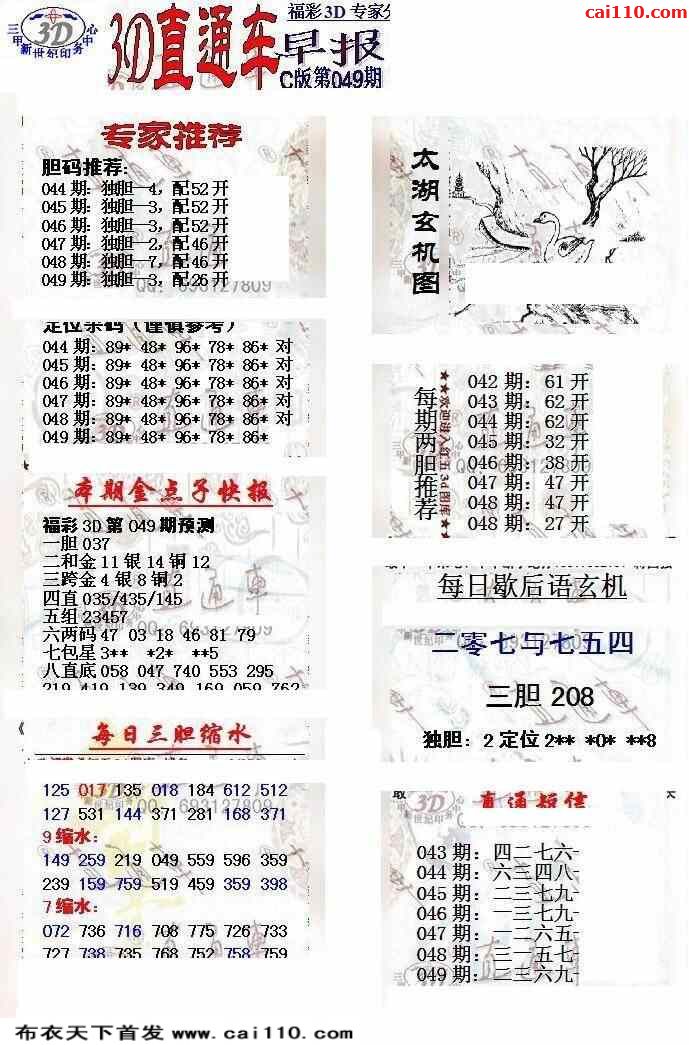 福彩3D 专家分
cai110.com
三甲
3D
中心
新世纪印务
3D直通车
早报
C版第049期
专家推荐
胆码推荐:
044期：独胆—4，配52开
045期：独胆—3，配52开
046期：独胆—3，配52开
047期：独胆—2，配46开
048期：独胆—7，配46开
049期：独胆—3，配26开
QQ: 693127809
定位杀码（谨慎参考）
044期：89* 48* 96* 78* 86* 对
045期：89* 48* 96* 78* 86* 对
046期：89* 48* 96* 78* 86* 对
047期：89* 48* 96* 78* 86* 对
048期：89* 48* 96* 78* 86* 对
049期：89* 48* 96* 78* 86*
本期金点子快报
福彩3D第049期预测
一胆037
二和金11银14铜12
三跨金4银8铜2
四直035/435/145
五组23457
六两码47 03 18 46 81 79
七包星3** *2* **5
八直底058 047 740 553 295
219 419 139 349 169 059 762
每日三胆缩水
125 017 135 018 184 612 512
127 531 144 371 281 168 371
9缩水：
149 259 219 049 559 596 359
239 159 759 519 459 359 398
7缩水：
072 736 716 708 775 726 733
727 738 735 768 752 758 759
太湖玄机图
每期两胆推荐
★★欢迎进入红五3d图库★★
042期：61开
043期：62开
044期：62开
045期：32开
046期：38开
047期：47开
048期：47开
048期：27开
每日歇后语玄机
二零七与七五四
三胆 208
独胆：2 定位2** *0* **8
直通短信
043期：四二七六
044期：六三四八
045期：二三七九
046期：一三七九
047期：一二六五
048期：三一五七
049期：二三六九
布衣天下首发 www.cai110.com